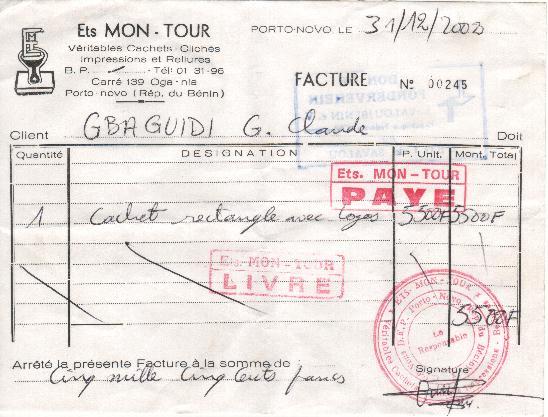 Ets MON - TOUR
Véritables Cachets - Clichés
Impressions et Reliures
B. P. - Tél 01 31-96
Carré 139 Oga-nla
Porto-novo (Rép. du Bénin)
PORTO-NOVO, LE 31/12/2002
FACTURE N° 00245
Client GBAGUIDI G. Claude Doit
Quantité DESIGNATION P. Unit. Mont. Total
Ets. MON - TOUR
PAYE
1 Cachet rectangle avec logos 5500F 5500F
Ets. MON - TOUR
LIVRE
5500F
ETS. MON - TOUR
Porto-Novo
Le Responsable
Arrêté la présente Facture à la somme de
Cinq mille cinq cents francs
Signature